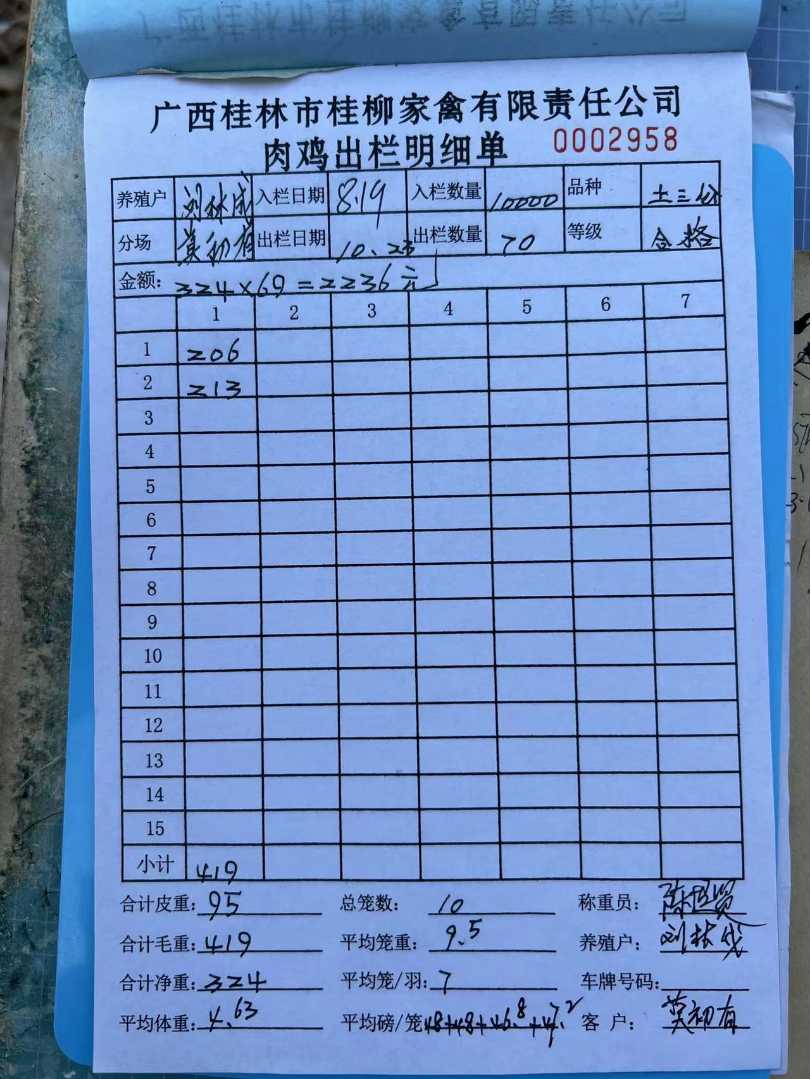 广西桂林市桂柳家禽有限责任公司
肉鸡出栏明细单 0002958
养殖户 刘林成 入栏日期 8.19 入栏数量 10000 品种 土三
分场 莫初有 出栏日期 10.23 出栏数量 70 等级 合格
金额: 324×69=2236元
1 2 3 4 5 6 7
1 206
2 213
3
4
5
6
7
8
9
10
11
12
13
14
15
小计 419
合计皮重: 95 总笼数: 10 称重员: 陈
合计毛重: 419 平均笼重: 9.5 养殖户: 刘林成
合计净重: 324 平均笼/羽: 7 车牌号码:
平均体重: 4.63 平均磅/笼 48+48+46.8+47.2 客户: 莫初有